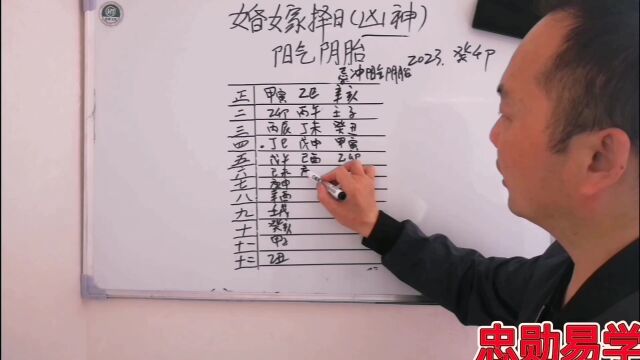 婚嫁择日(凶神)
阳气阴胎
2023. 癸卯
忌冲阳气阴胎
正 甲寅 乙巳 辛亥
二 乙卯 丙午 壬子
三 丙辰 丁未 癸丑
四 丁巳 戊申 甲寅
五 戊午 己酉 乙卯
六 己未
七 庚申
八 辛酉
九 壬戌
十 癸亥
十一 甲子
十二 乙丑
忠勋易学